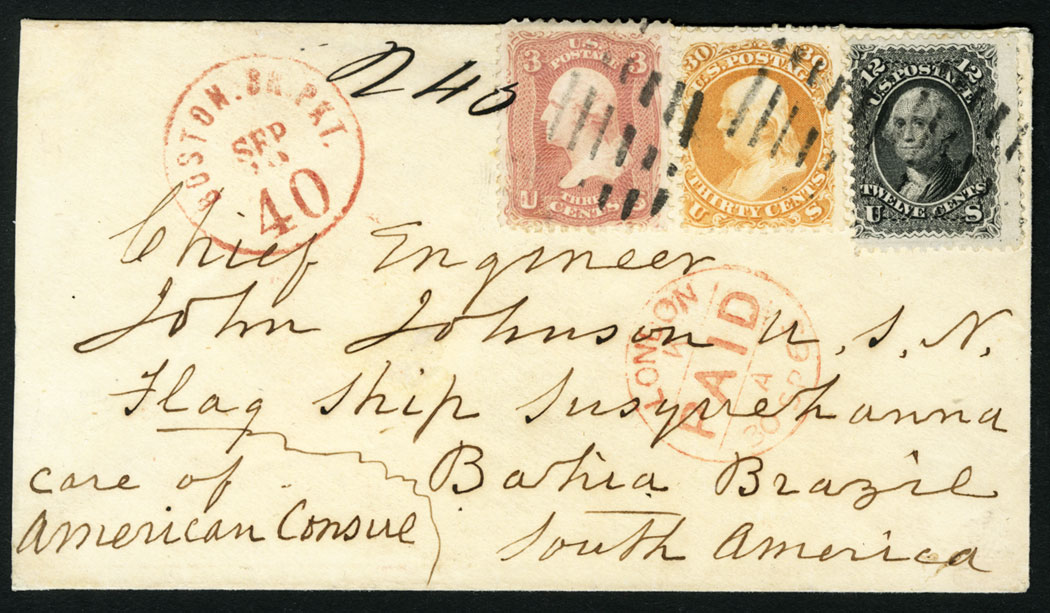 BOSTON. BR. PKT.
SEP
40
245
3 U.S. POSTAGE 3
U THREE CENTS S
30 U.S. POSTAGE 30
U THIRTY CENTS S
12 U.S. POSTAGE 12
U TWELVE CENTS S
Chief Engineer
John Johnson U.S.N.
Flag Ship Susquehanna
care of Bahia Brazil
American Consul South America
LONDON
PAID
30 SP 6